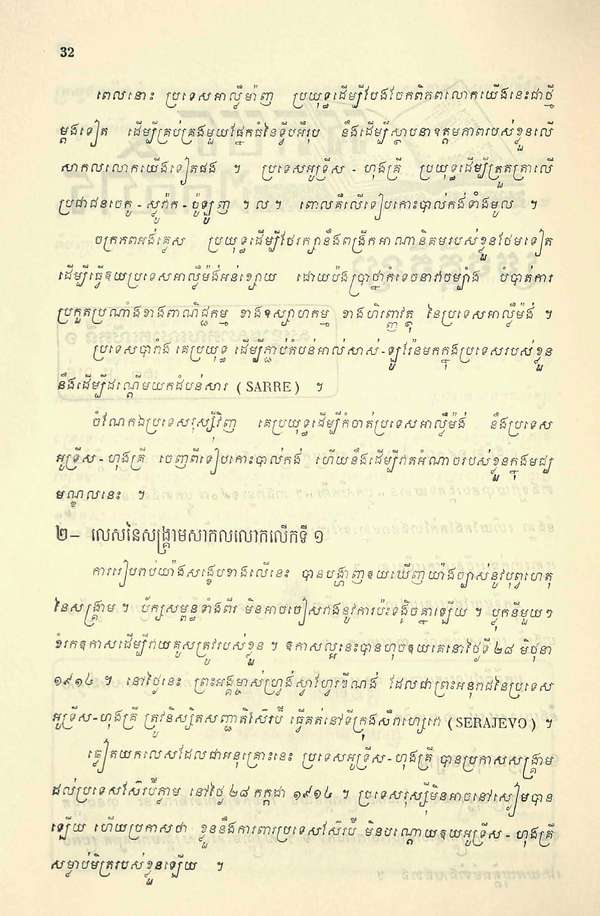 32
ពេលនោះ ប្រទេសអាល្លឺម៉ាញ ប្រយុទ្ធដើម្បីបែងចែកពិភពលោកយើងនេះជាថ្មី
ម្ដងទៀត ដើម្បីគ្រប់គ្រងមួយផ្នែកធំនៃទ្វីបអឺរ៉ុប នឹងដើម្បីស្ថាបនាឧត្ដមភាពរបស់ខ្លួនលើ
សាកលលោកយើងទៀតផង ។ ប្រទេសអូទ្រីស - ហុងគ្រី ប្រយុទ្ធដើម្បីត្រួតត្រាលើ
ប្រជាជនចេកូ - ស្លូវ៉ាក - ប៉ូឡូញ ។ ល ។ ពោលគឺលើទៀបកោះបាល់កង់ទាំងមូល ។
ចក្រភពអង់គ្លេស ប្រយុទ្ធដើម្បីថែរក្សានឹងពង្រីកអាណានិគមរបស់ខ្លួនថែមទៀត
ដើម្បីធ្វើឲយប្រទេសអាល្លឺម៉ង់អន់ខ្សោយ ដោយបង់ប្រាថ្នាកទេចនាវាចម្បាំង បំបាត់ការ
ប្រកួតប្រណាំងខាងពាណិជ្ជកម្ម ខាងឧស្សាហកម្ម ខាងហិរញ្ញវត្ថុ នៃប្រទេសអាល្លឺម៉ង់ ។
ប្រទេសបារាំង គេប្រយុទ្ធ ដើម្បីភ្ជាប់តំបន់អាល់សាស់-ឡូរ៉ែនមកក្នុងប្រទេសរបស់ខ្លួន
នឹងដើម្បីដណ្ដើមយកដំបន់សារ ( SARRE ) ។
ចំណែកឯប្រទេសរុស្ស៊ីវិញ គេប្រយុទ្ធដើម្បីកំចាត់ប្រទេសអាល្លឺម៉ង់ នឹងប្រទេស
អូទ្រីស-ហុងគ្រី ចេញពីទៀបកោះបាល់កង់ ហើយនឹងដើម្បីវាតអំណាចរបស់ខ្លួនក្នុងមជ្ឈ
មណ្ឌលនេះ ។
២– លេសនៃសង្គ្រាមសាកលលោកលើកទី ១
ការរៀបរាប់យ៉ាងសង្ខេបខាងលើនេះ បានបង្ហាញឲយឃើញយ៉ាងច្បាស់នូវបុព្វហេតុ
នៃសង្គ្រាម ។ ប័ក្សសម្ពន្ធទាំងពីរ មិនអាចចៀសវាងនូវការប៉ះទង្គិចគ្នាឡើយ ។ ប្លុកនីមួយៗ
ចំរកឱកាសដើម្បីវាយគូសត្រូវរបស់ខ្លួន ។ ឱកាសល្អនេះបានហុចឲយគេនៅថ្ងៃទី ២៨ មិថុនា
១៩១៤ ។ នៅថ្ងៃនេះ ព្រះអង្គម្ចាស់ហ្វ្រង់ស្វាហ្វែរឌីណង់ ដែលជាព្រះអនុរាជនៃប្រទេស
អូទ្រីស-ហុងគ្រី ត្រូវនិស្សិតសញ្ជាតិស៊ែរប៊ី ធ្វើគត់នៅទីក្រុងសឺរ៉ាហ្សេវ៉ោ ( SERAJEVO ) ។
ឆ្លៀតយកលេសដែលជាអនុគ្រោះនេះ ប្រទេសអូទ្រីស-ហុងគ្រី បានប្រកាសសង្គ្រាម
ដល់ប្រទេសស៊ែរប៊ីភ្លាម នៅថ្ងៃ ២៨ កក្កដា ១៩១៤ ។ ប្រទេសរុស្ស៊ីមិនអាចនៅស្ងៀមបាន
ឡើយ ហើយប្រកាសថា ខ្លួននឹងការពារប្រទេសស៊ែរប៊ី មិនបណ្ដោយឲយអូទ្រីស - ហុងគ្រី
សម្លាប់មិត្ររបស់ខ្លួនឡើយ ។